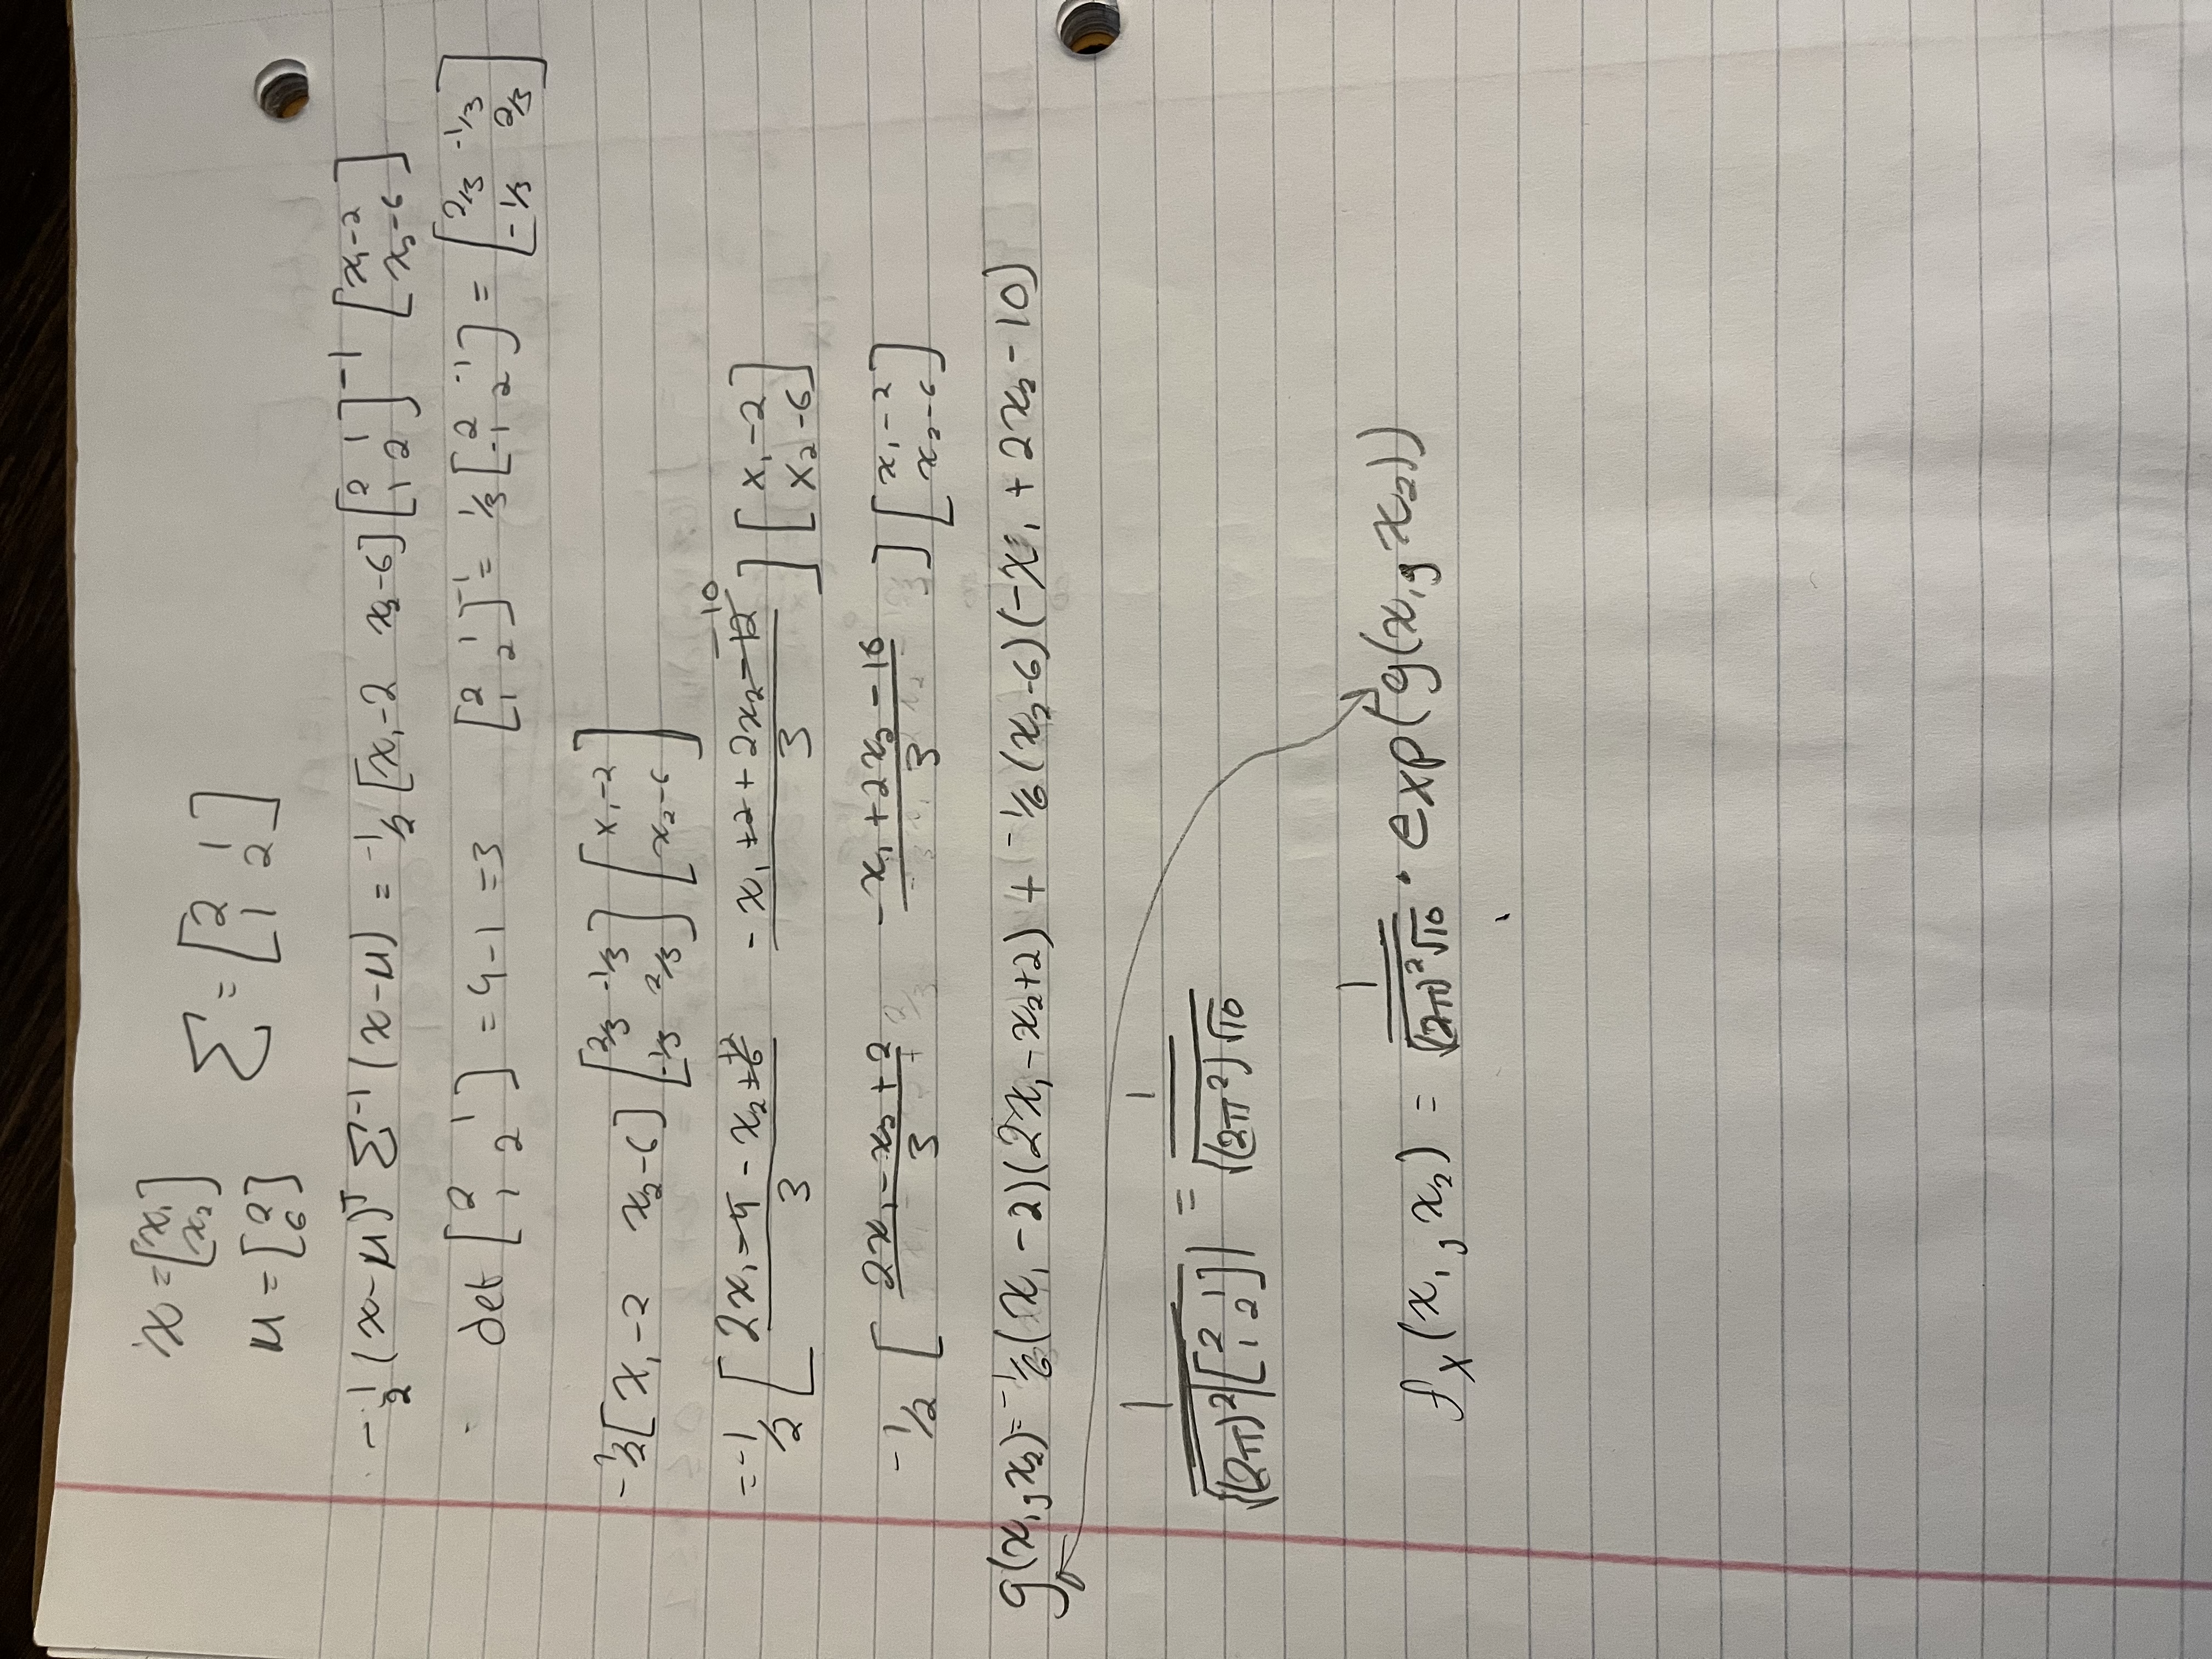 x = [x₁ x₂]
Σ = [2 1 1 2]
μ = [2 6]
-1/2 (x-μ)ᵀ Σ⁻¹ (x-μ) = -1/2 [x₁-2 x₂-6] [2 1 1 2]⁻¹ [x₁-2 x₂-6]
det [2 1 1 2] = 4-1 = 3 [2 1 1 2]⁻¹ = 1/3 [2 -1 -1 2] = [2/3 -1/3 -1/3 2/3]
-1/2 [x₁-2 x₂-6] [2/3 -1/3 -1/3 2/3] [x₁-2 x₂-6]
= -1/2 [(2x₁-4-x₂+6)/3 +2 (-x₁+2+2x₂-12)/3 -10] [x₁-2 x₂-6]
-1/2 [(2x₁-x₂+2)/3 (-x₁+2x₂-10)/3] [x₁-2 x₂-6]
g(x₁,x₂) = -1/6 (x₁-2)(2x₁-x₂+2) + -1/6 (x₂-6)(-x₁+2x₂-10)
1/√((2π)²|[2 1 1 2]|) = 1/(√(2π²)√10)
fₓ(x₁,x₂) = 1/(√(2π)²√10) · exp(g(x₁,x₂))